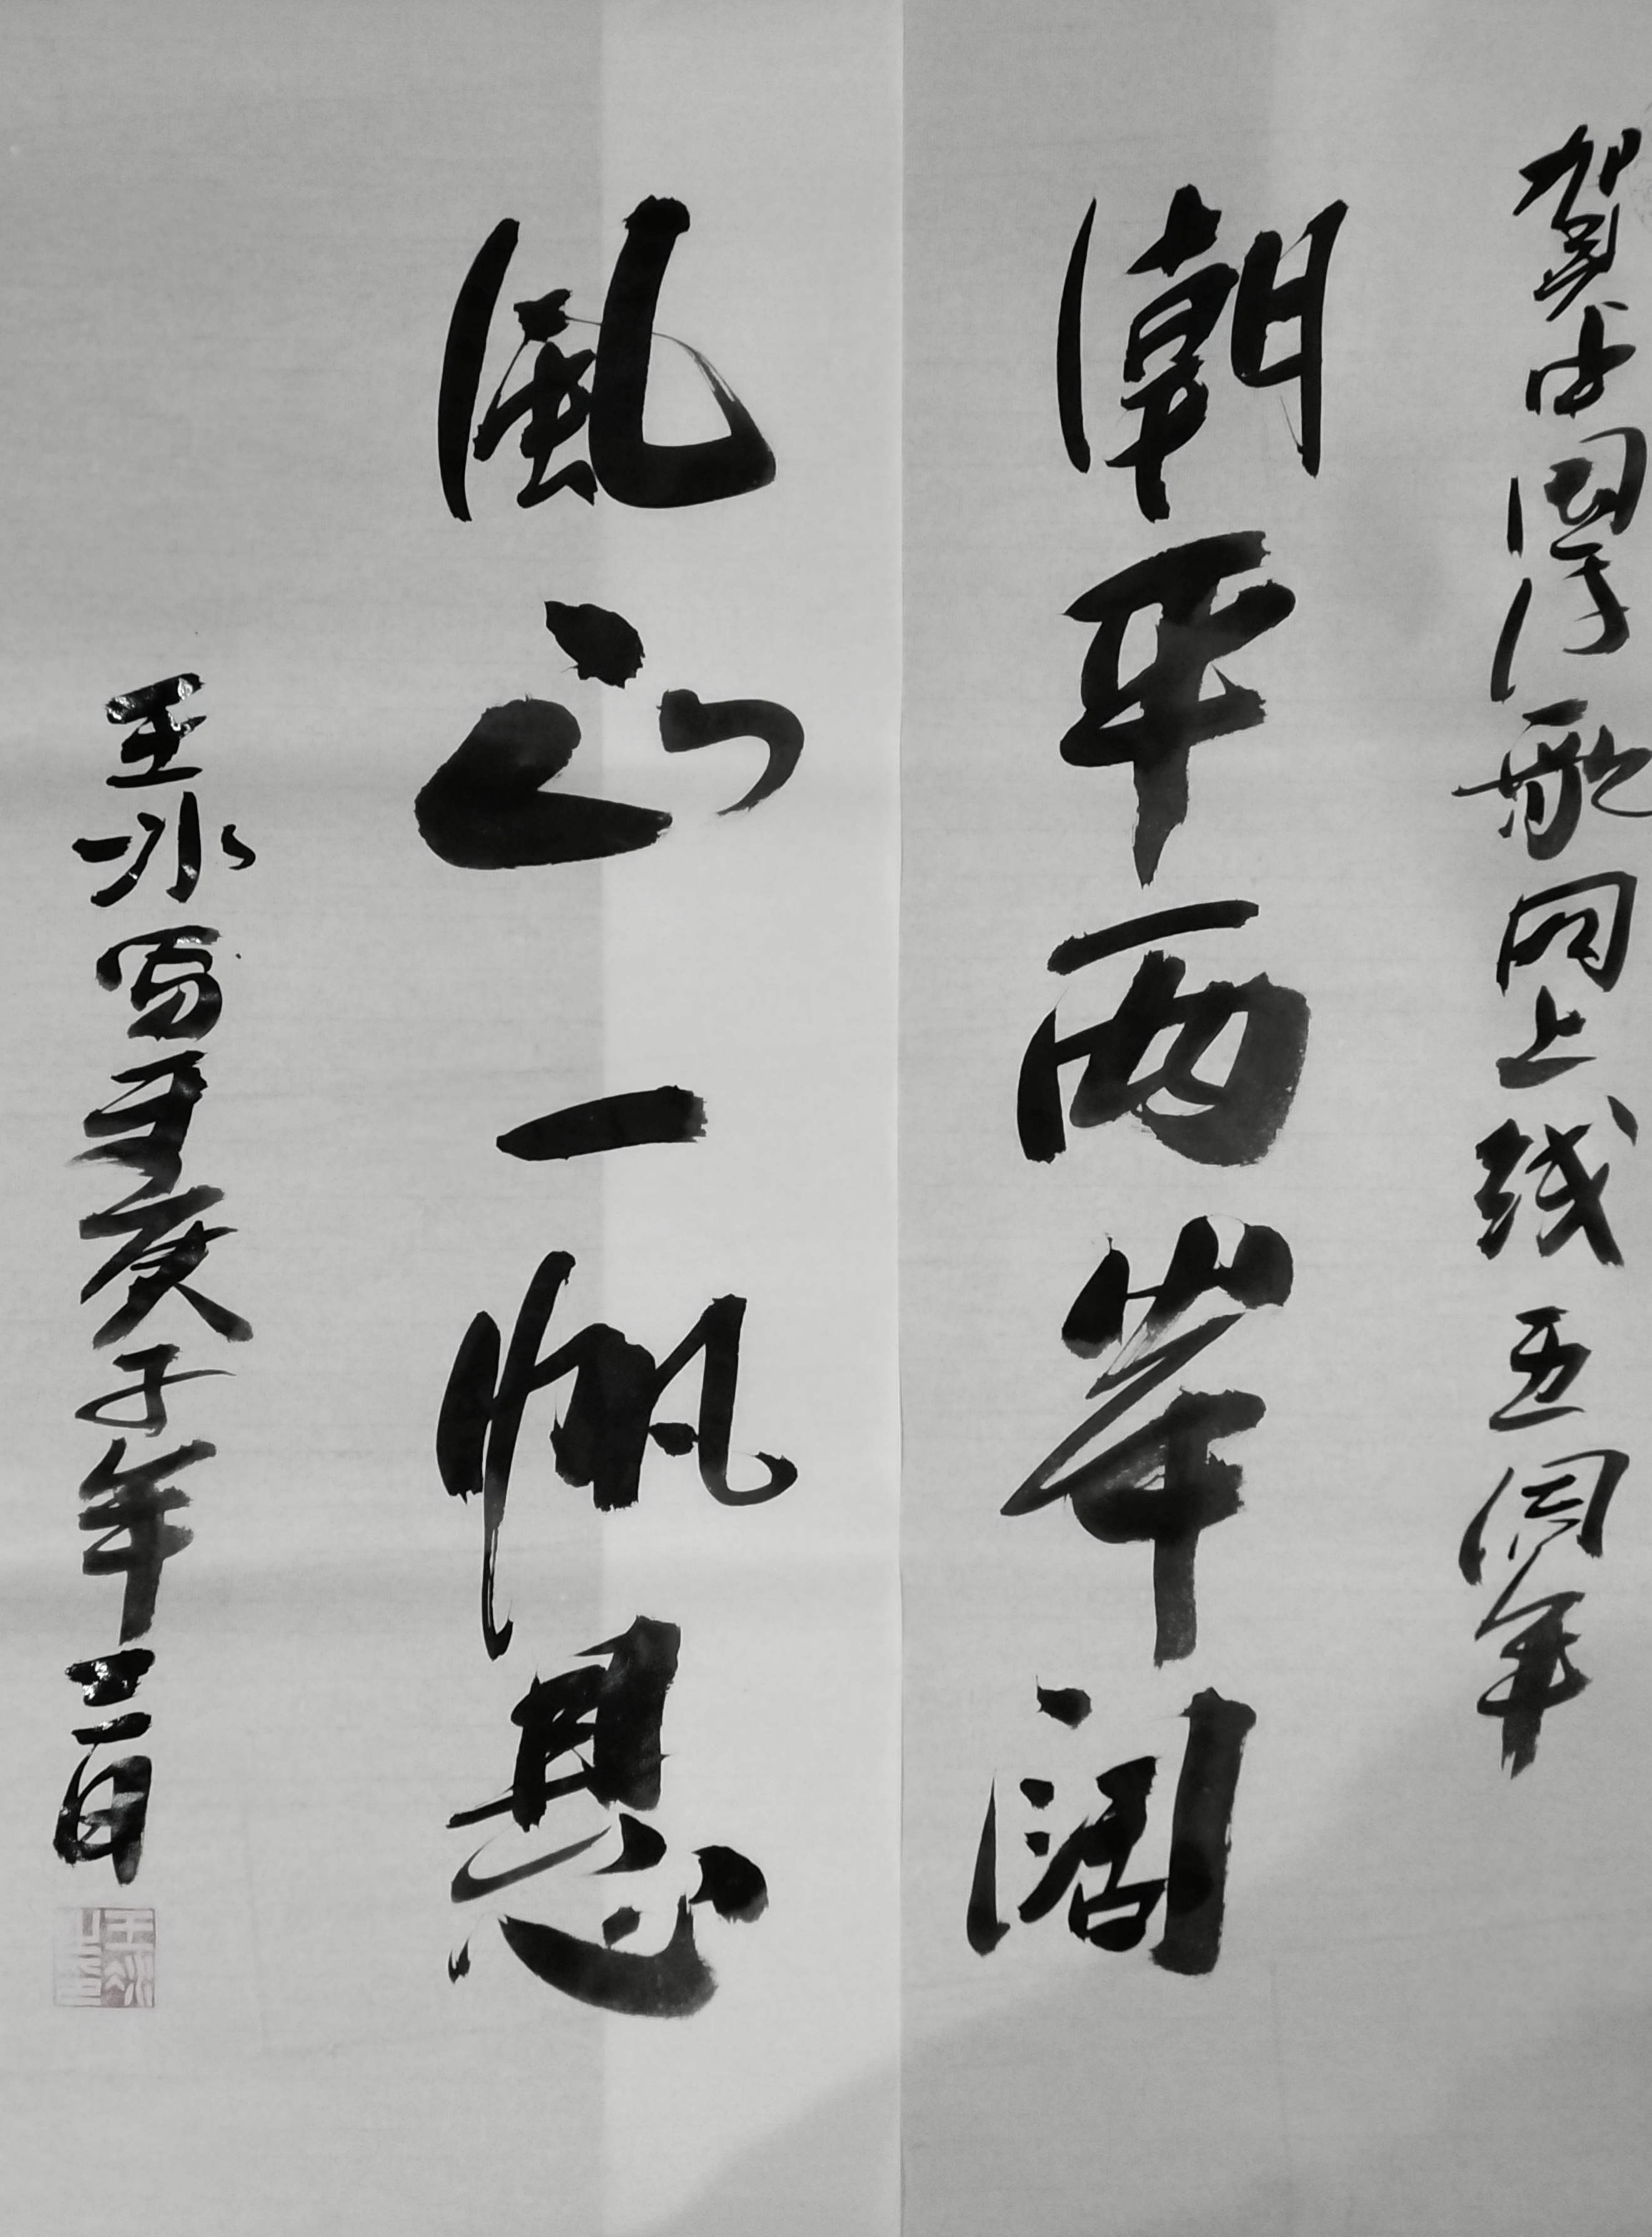 贺中国诗歌网上线五周年
潮平两岸阔
風正一帆悬
王冰写于庚子年三月
王冰之印